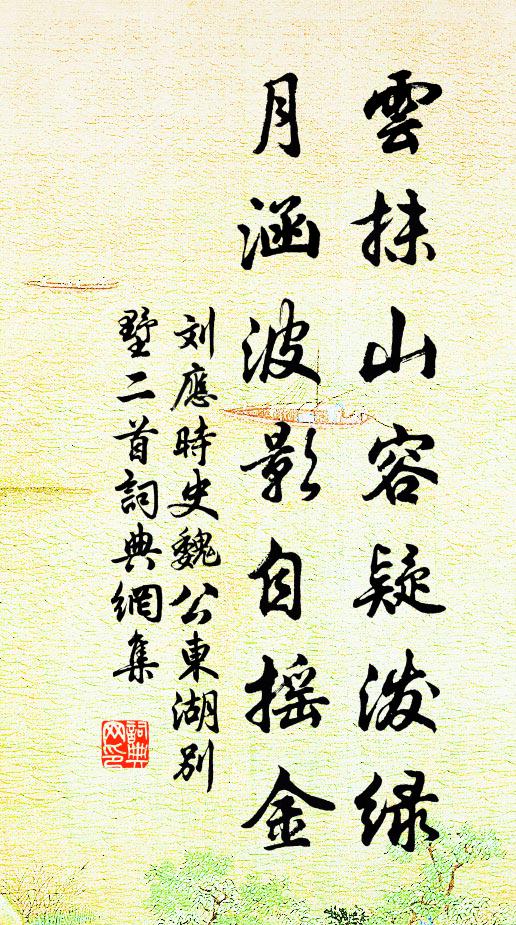 雲抹山容疑泼绿
月涵波影自摇金
刘應時史魏公東湖别
墅二首詞典網集
詞典
网印